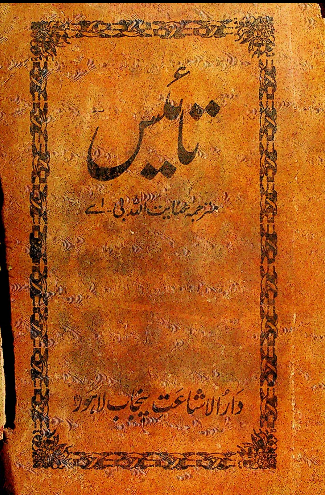 تائیس
مترجمہ عنایت اللہ بی۔ اے
دارالاشاعت پنجاب لاہور